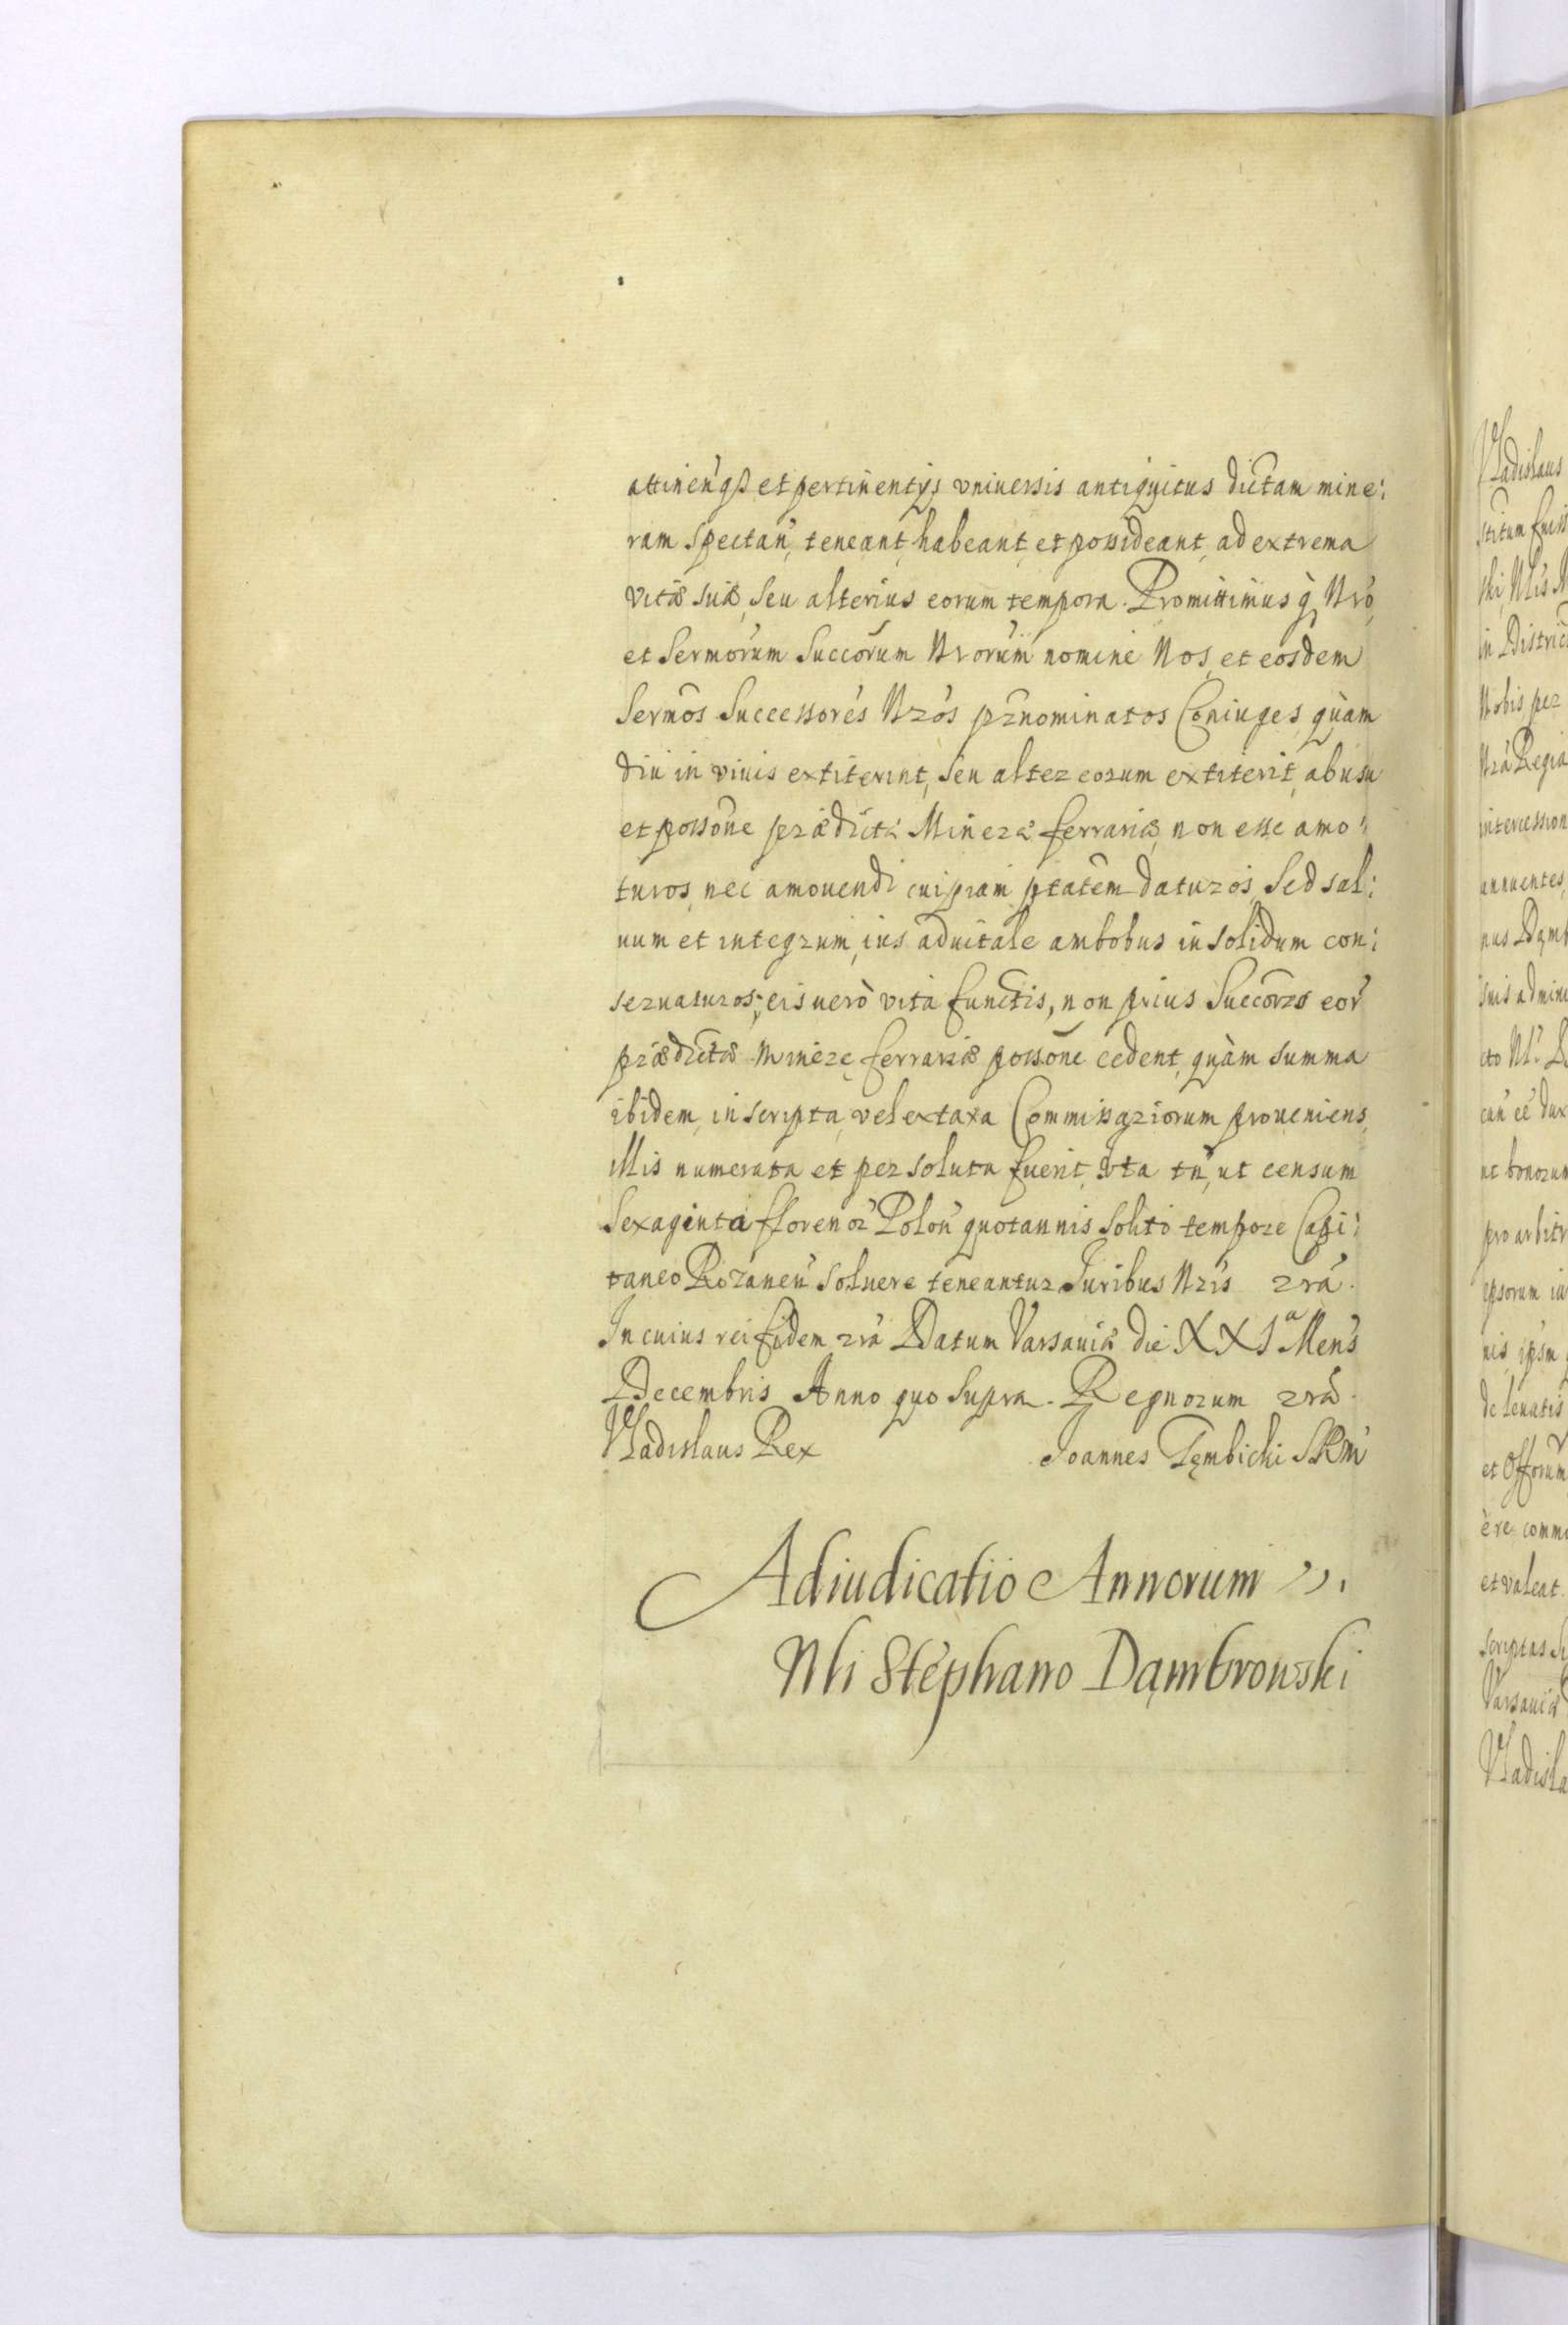 attineñ ꝗß et pertinentijs vniuersis antiquitus dictam mine:
ram spectań, teneant, habeant, et possideant, ad extrema
vitæ suæ, seu alterius eorum tempora. Promittimus q́ Nró,
et Sermórum Succórum Nrorúm nomine Nos, et eosdem
Sermõs Successorés Nrós prænominatos Coniuges, quàm
diu in viuis extiterint, seu alter eorum extiterit, ab usu
et possõne prædictæ Mineræ ferrariæ, non esse amo:
turos, nec amouendi cuipiam ptatẽm daturos, Sed sal:
uum et integrum, ius aduitale ambobus in solidum con:
seruaturos; eis uerò vita functis, non prius Succores eor̃
prædictæ Minerę ferrariæ possõne cedent, quàm summa
ibidem, inscripta, vel ex taxa Commissariorum proueniens,
illis numerata et persoluta fuerit, Ita tñ, ut censum
Sexaginta florenor̃ Poloń quotannis solito tempore Capi:
taneo Rożaneń soluere teneantur Juribus Nris &rá.
In cuius rei fidem &rá Datum Varsauiæ die XXIa Mens̃
Decembris Anno quo supra. Regnorum &rá.
Vladislaus Rex Joannes Tęmbicki SRM
Adiudicatio Annorum
Nli Stephano Dąmbrowski
Vladislaus
in Distric
Nobis per
Nrá Regia
intercession
annuentes,
nus Dąmb
suis admini
ut bonorum
pro arbitr
ipsorum iu
de leuatis
et Offorum
ere commo
et valeat.
scriptas
Varsauiæ
Vladisla